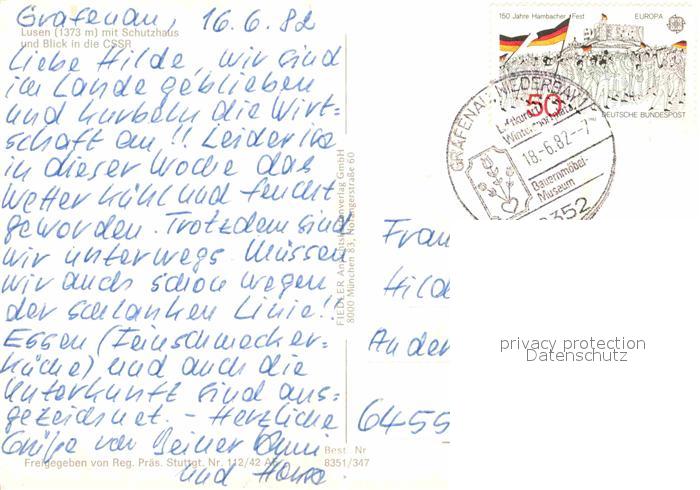 Grafenau, 16.6.82
Lusen (1373 m) mit Schutzhaus
und Blick in die CSSR
Liebe Hilde, wir sind
im Lande geblieben
und kurbeln die Wirt=
schaft an!! Leider ist
in dieser Woche das
Wetter kühl und feucht
geworden. Trotzdem sind
wir unterwegs. Müssen
wir auch schon wegen
der schlanken Linie!!
Essen (Feinschmecker=
küche) und auch die
Unterkunft sind aus=
gezeichnet. – Herzliche
Grüße von Deiner
und
Freigegeben von Reg. Präs. Stuttgt. Nr. 112/42
Best. Nr
8351/347
FIEDLER Ansichtskartenverlag GmbH
8000 München 83,
60
150 Jahre Hambacher Fest
EUROPA
50
DEUTSCHE BUNDESPOST
GRAFENAU, NIEDERBAY
Luftkurort
Wintersportplatz
18.-6.82.--7
Bauernmöbel-
Museum
8352
Frau
Hild
Ander
6455
privacy protection
Datenschutz